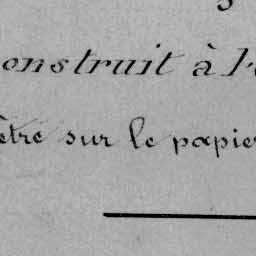 onstruit à l'
être sur le papier